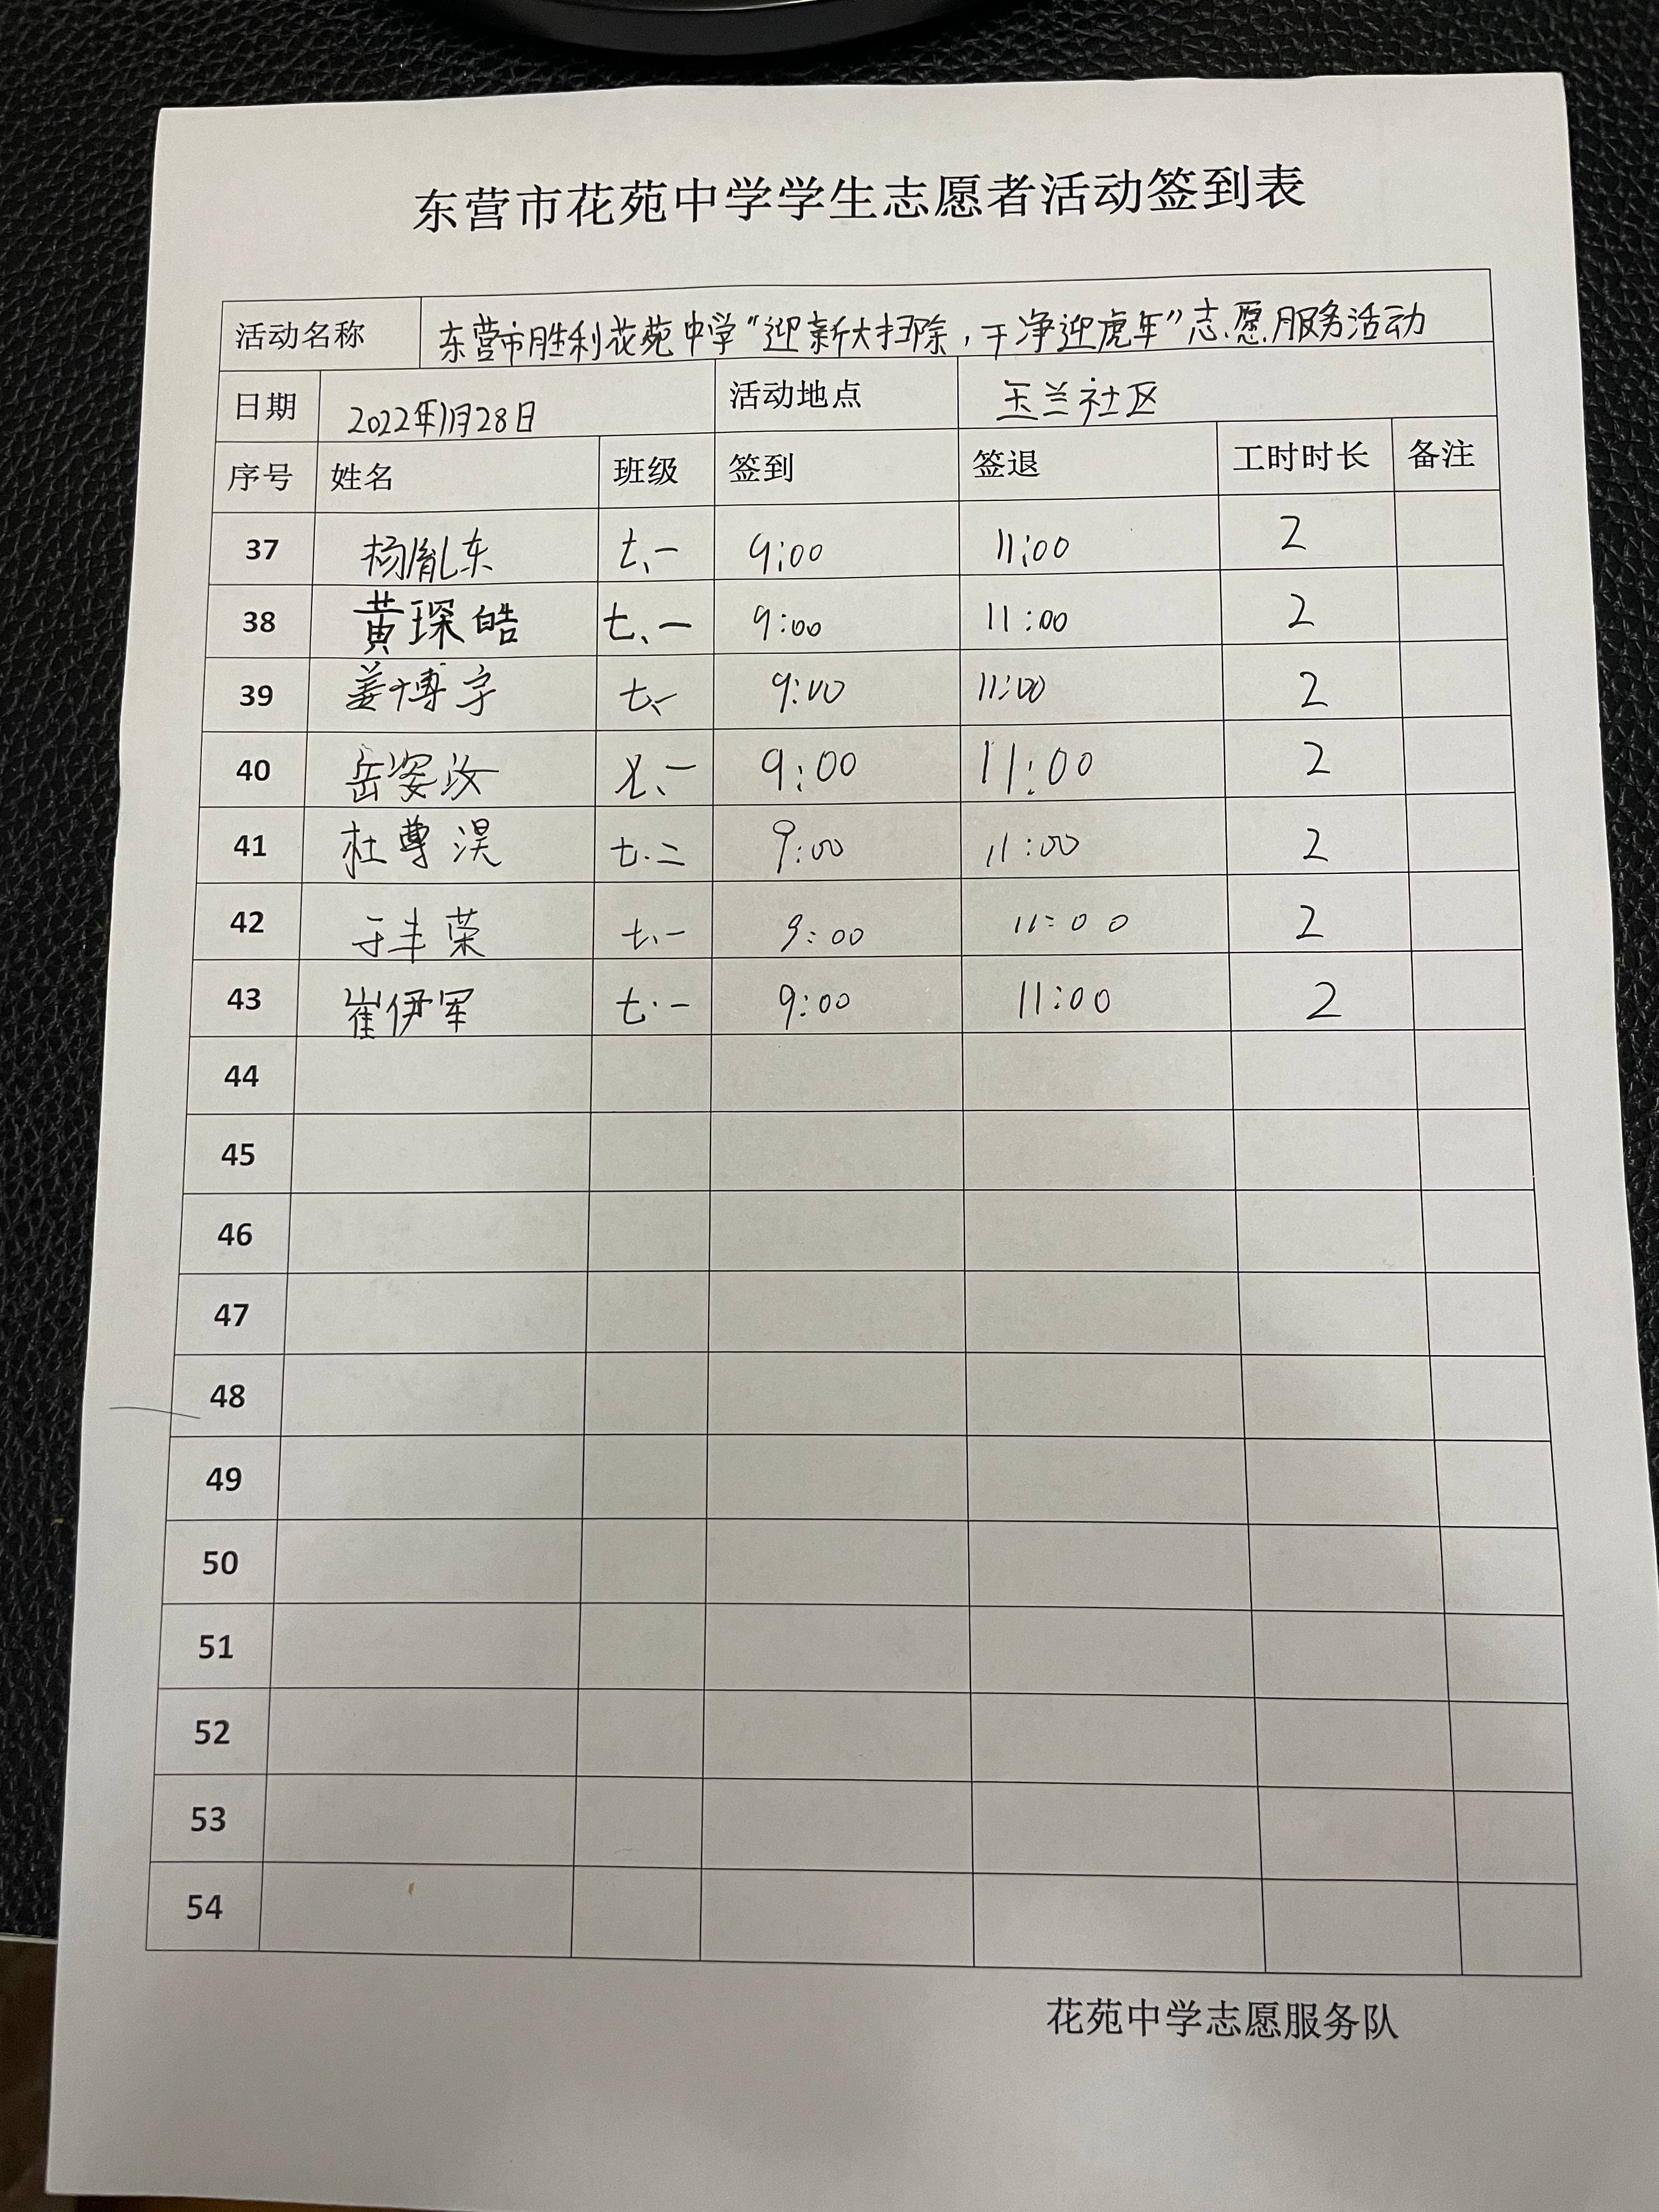 东营市花苑中学学生志愿者活动签到表
活动名称 东营市胜利花苑中学“迎新大扫除，干净迎虎年”志愿服务活动
日期 2022年1月28日 活动地点 玉兰社区
序号 姓名 班级 签到 签退 工时时长 备注
37 杨胤东 七、一 9:00 11:00 2
38 黄琛皓 七、一 9:00 11:00 2
39 姜博宇 七、一 9:00 11:00 2
40 岳姿汝 七、一 9:00 11:00 2
41 杜尊淏 七.二 9:00 11:00 2
42 于丰荣 七、一 9:00 11:00 2
43 崔伊军 七.一 9:00 11:00 2
44
45
46
47
48
49
50
51
52
53
54
花苑中学志愿服务队